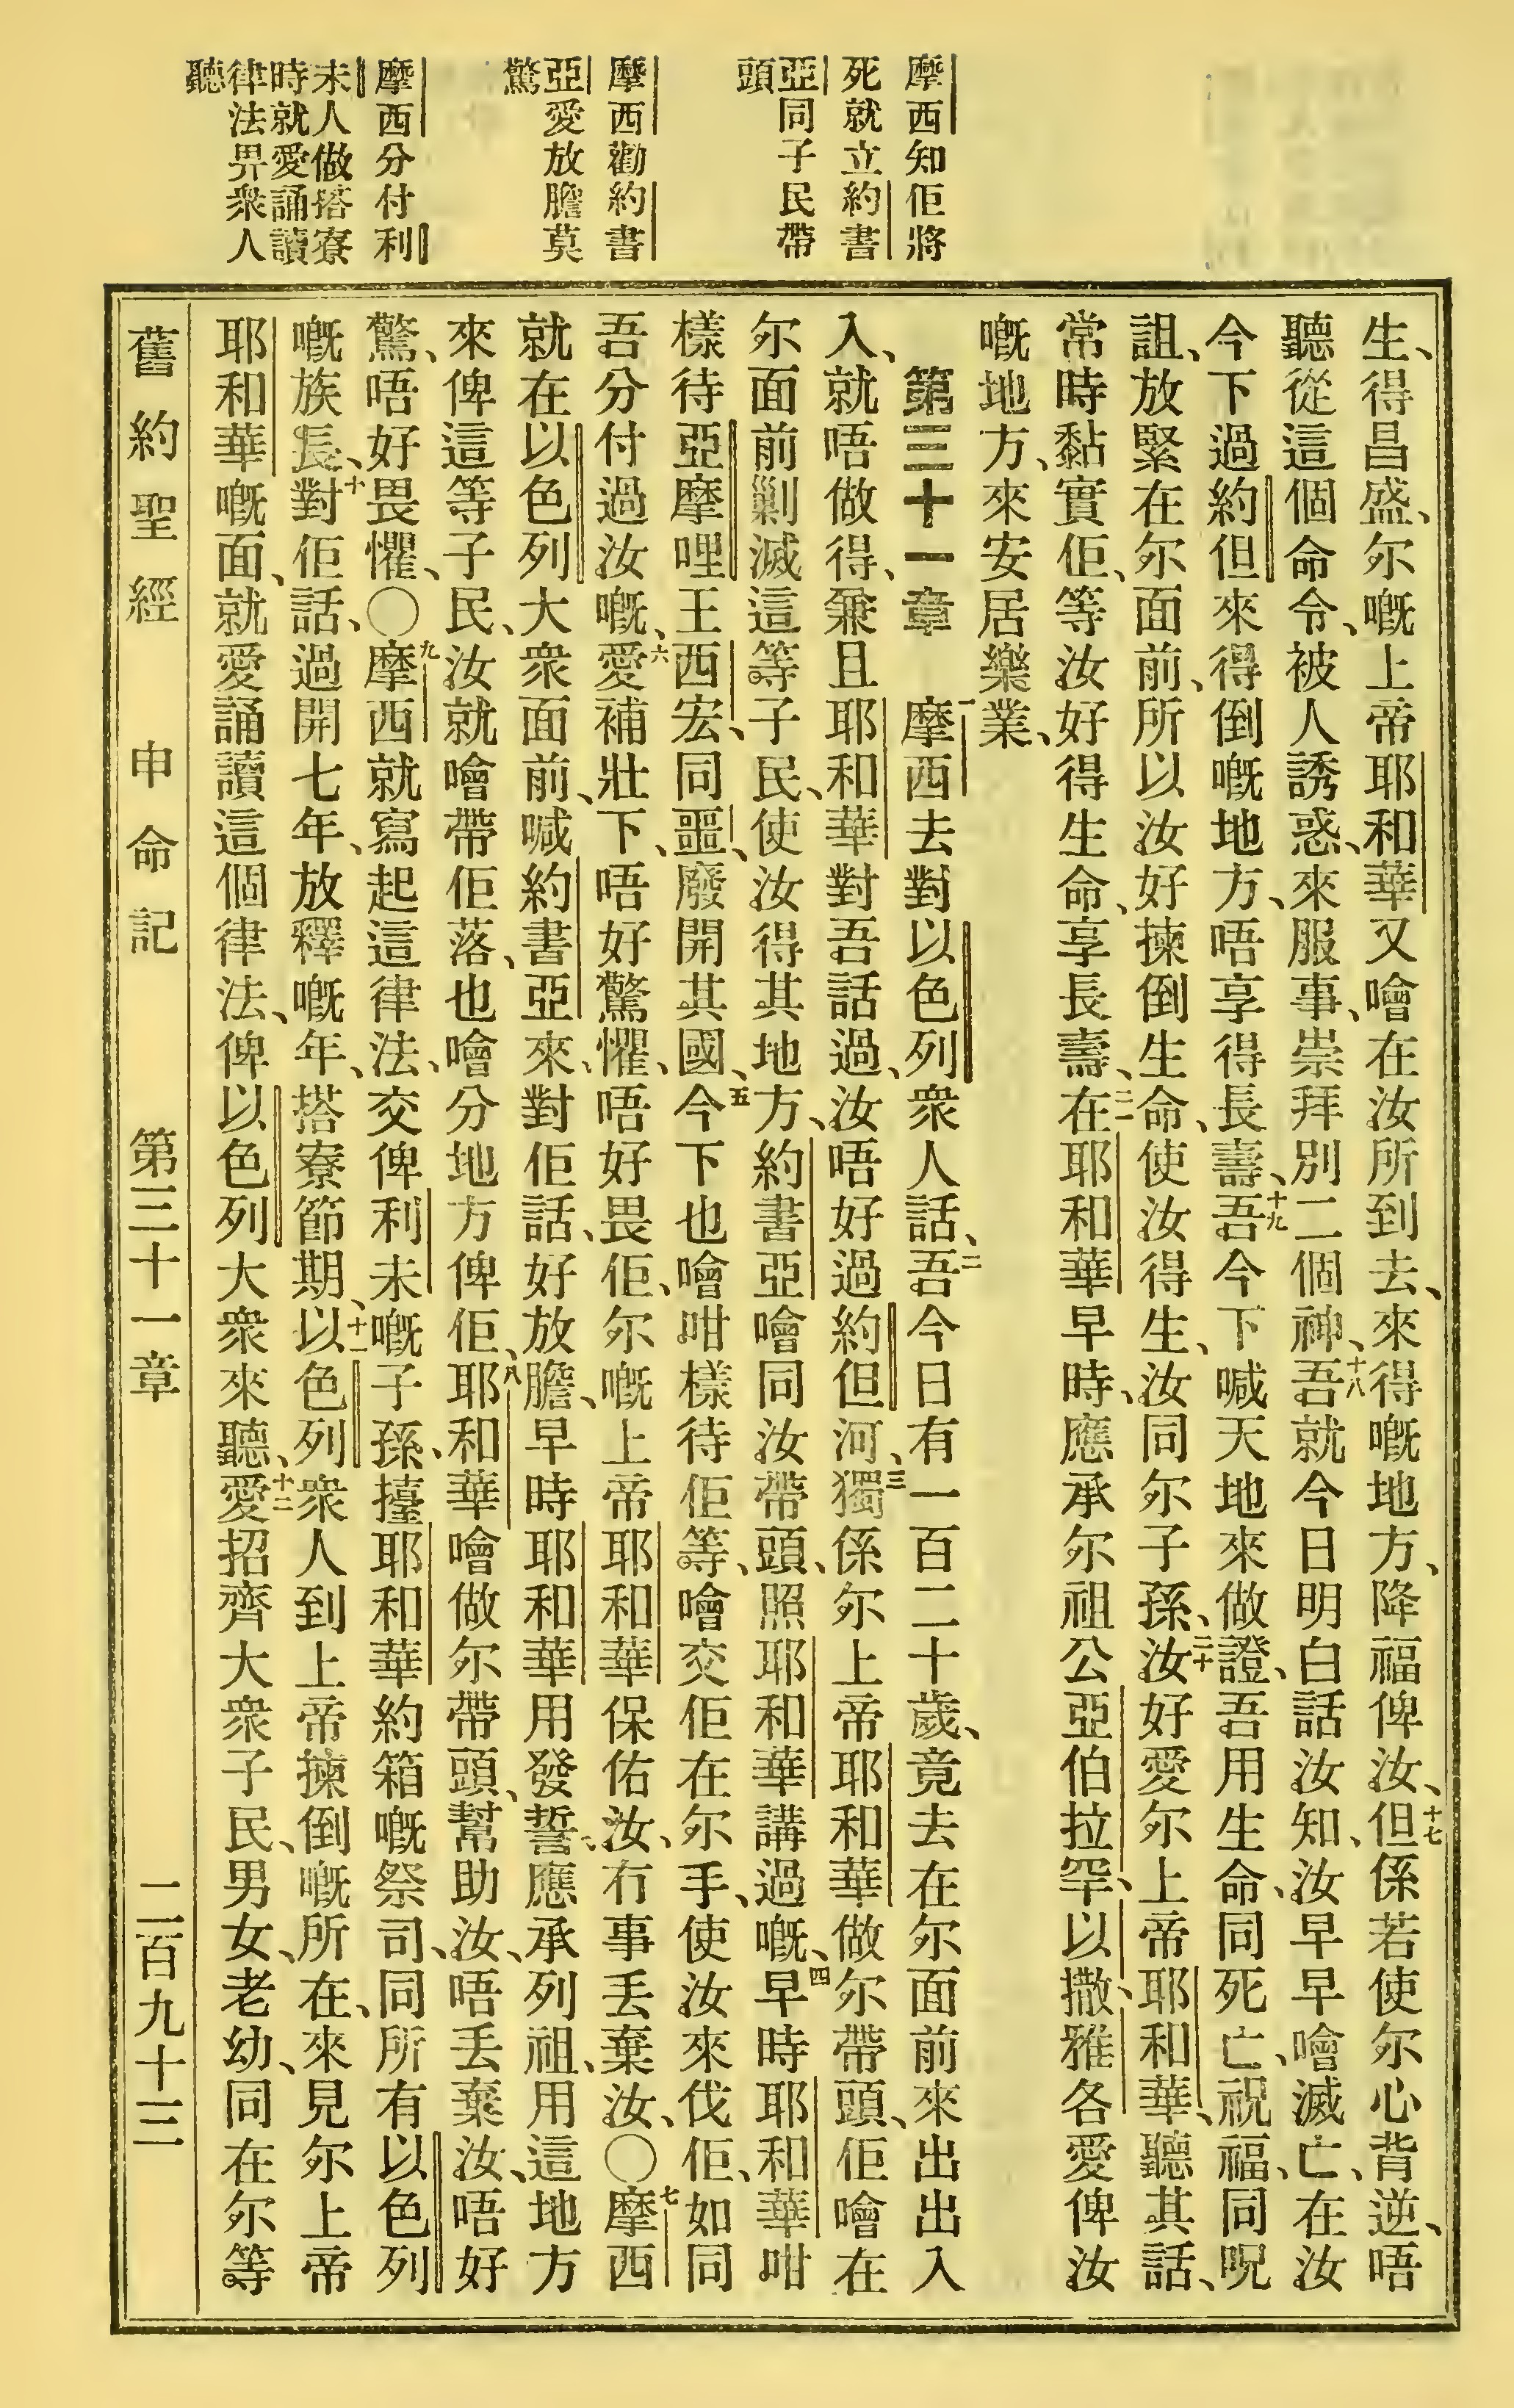 摩西知佢將
死就立約書
亞同子民帶
頭
摩西勸約書
亞愛放膽莫
驚
摩西分付利
未人做搭寮
時就愛誦讀
律法畀衆人
聽
生、得昌盛、尔嘅上帝耶和華又噲在汝所到去、來得嘅地方、降福俾汝、十七但係若使尔心背逆、唔
聽從這個命令、被人誘惑、來服事、崇拜別二個神、十八吾就今日明白話汝知、汝早早噲滅亡、在汝
今下過約但來得倒嘅地方、唔享得長壽、十九吾今下喊天地來做證、吾用生命、同死亡、祝福、同呪
詛、放緊在尔面前、所以汝好揀倒生命、使汝得生、汝同尔子孫、二十汝好愛尔上帝耶和華、聽其話、
常時黏實佢、等汝好得生命、享長壽、二一在耶和華早時、應承尔祖公亞伯拉罕、以撒、雅各愛俾汝
嘅地方、來安居樂業、
第三十一章 一摩西去對以色列衆人話、二吾今日有一百二十歲、竟去在尔面前來出出入
入、就唔做得、兼且耶和華對吾話過、汝唔好過約但河、三獨係尔上帝耶和華做尔帶頭、佢噲在
尔面前剿滅這等子民、使汝得其地方、約書亞噲同汝帶頭、照耶和華講過嘅、四早時耶和華咁
樣待亞摩哩王西宏、同噩、廢開其國、五今下也噲咁樣待佢等、噲交佢在尔手、使汝來伐佢、如同
吾分付過汝嘅、六愛補壯下、唔好驚懼、唔好畏佢、尔嘅上帝耶和華保佑汝、冇事丢棄汝、○七摩西
就在以色列大衆面前、喊約書亞來、對佢話、好放膽、早時耶和華用發誓、應承列祖、用這地方
來俾這等子民、汝就噲帶佢落、也噲分地方俾佢、八耶和華噲做尔帶頭、幫助汝、唔丢棄汝、唔好
驚、唔好畏懼、○九摩西就寫起這律法、交俾利未嘅子孫、擡耶和華約箱嘅祭司、同所有以色列
嘅族長、十對佢話、過開七年、放釋嘅年、搭寮節期、十一以色列衆人到上帝揀倒嘅所在、來見尔上帝
耶和華嘅面、就愛誦讀這個律法、俾以色列大衆來聽、十二愛招齊大衆子民、男女、老幼、同在尔等
舊約聖經 申命記 第三十一章 二百九十三